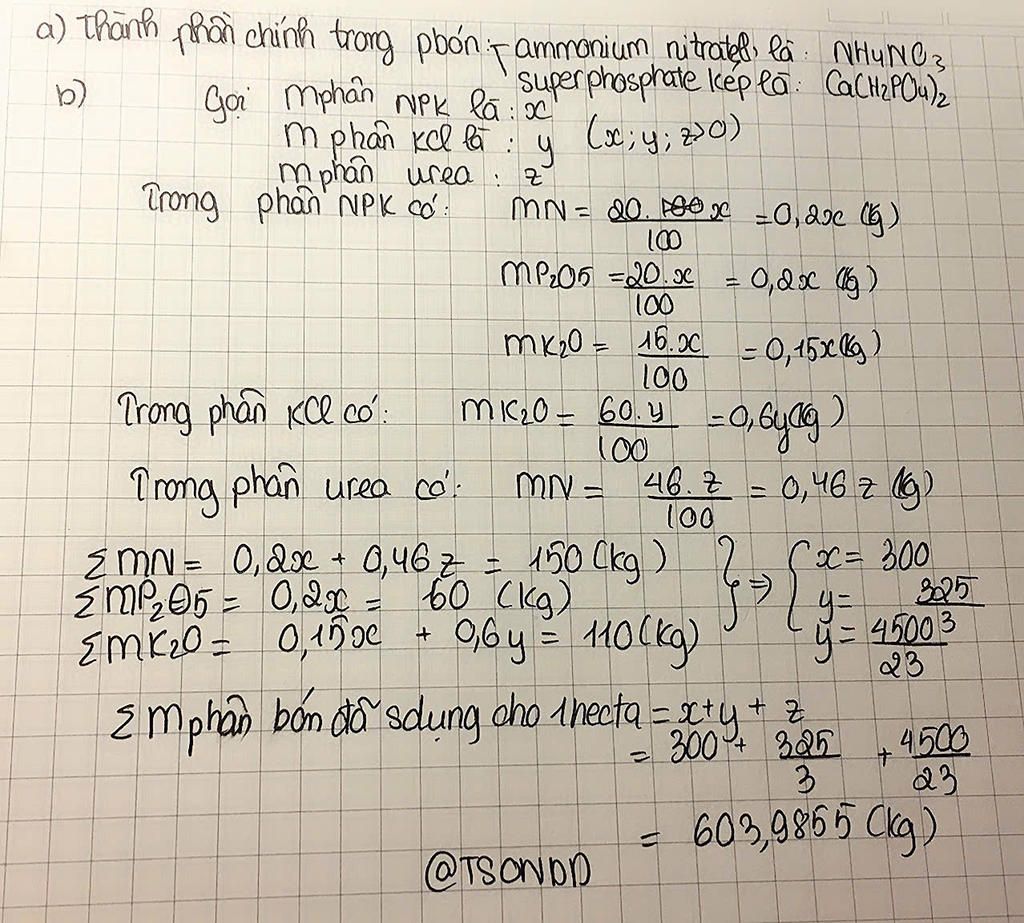 a) Thành phần chính trong phân: - ammonium nitrate là: NH4NO3
superphosphate kép là: Ca(H2PO4)2
b) Gọi m phân NPK là: x
m phân KCl là: y (x; y; z>0)
m phân urea: z
Trong phân NPK có: mN = 20.x/100 = 0,2x (kg)
mP2O5 = 20.x/100 = 0,2x (kg)
mK2O = 15.x/100 = 0,15x (kg)
Trong phân KCl có: mK2O = 60.y/100 = 0,6y (kg)
Trong phân urea có: mN = 46.z/100 = 0,46z (kg)
ΣmN = 0,2x + 0,46z = 150 (kg) } ⇒ { x = 300
ΣmP2O5 = 0,2x = 60 (kg) y = 325/3
ΣmK2O = 0,15x + 0,6y = 110 (kg) y = 4500/23
Σm phân bón đã sdụng cho 1 hecta = x + y + z
= 300 + 325/3 + 4500/23
= 603,9855 (kg)
@TSONDD